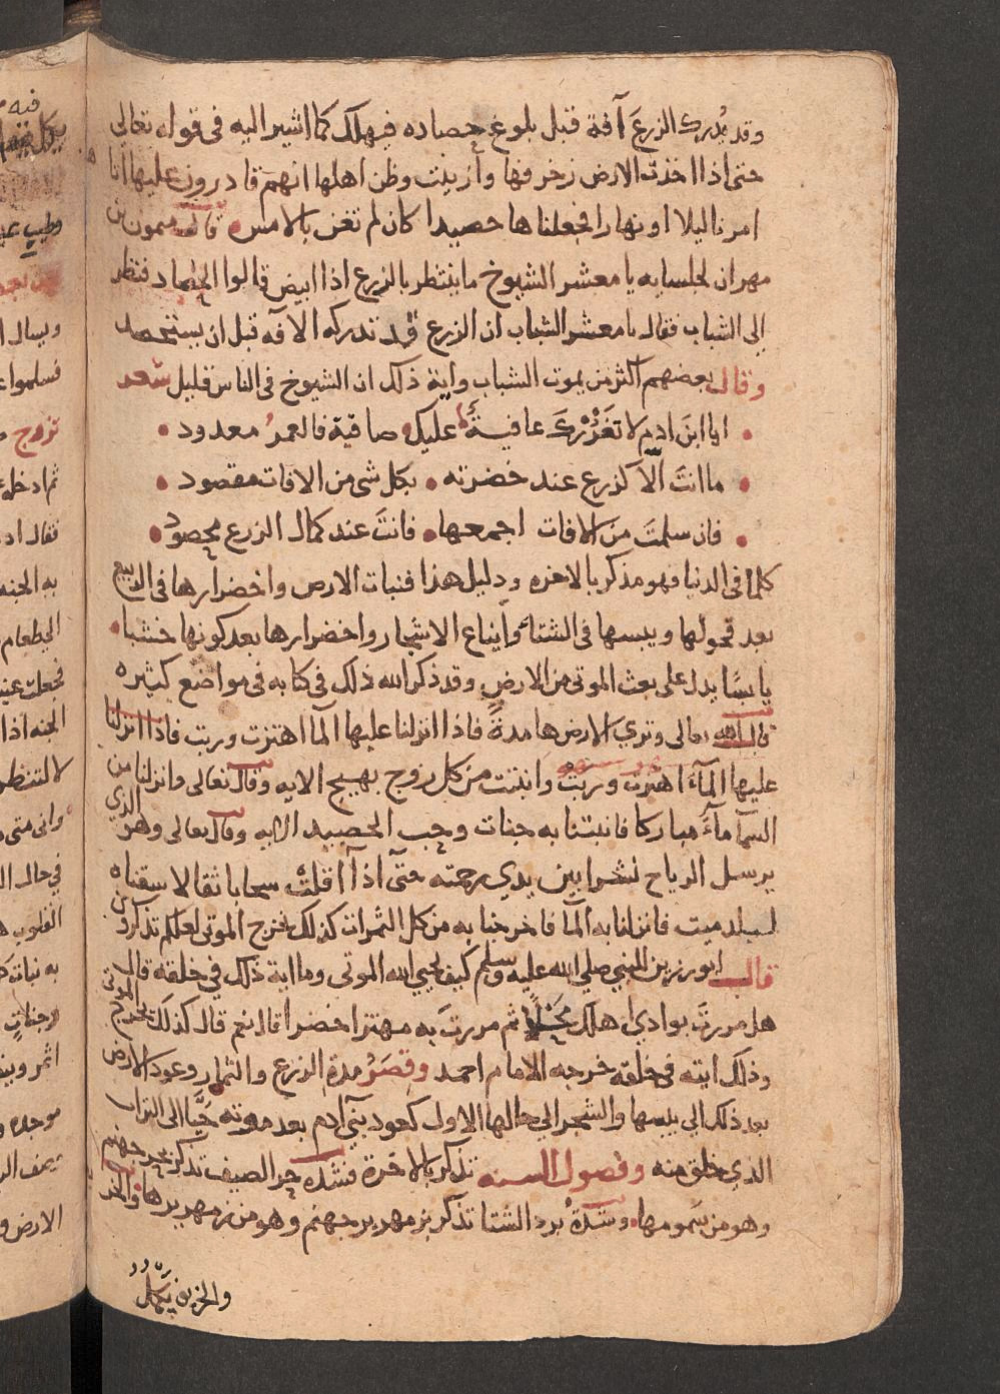 وقد يُدرك الزرعَ آفة قبل بلوغ حصاده فيهلك كما اشير اليه في قوله تعالى
حتى اذا اخذت الارض زخرفها وازينت وظن اهلها انهم قادرون عليها اتاها
امرنا ليلا او نهارا فجعلناها حصيدا كان لم تغن بالامس قال ميمون بن
مهران لجلسايه يا معشر الشيوخ ما ينتظر بالزرع اذا ابيض قالوا الحصاد فنظر
الي الشباب فقال يا معشر الشباب ان الزرع قد تدركه الافه قبل ان يستحصد
وقال بعضهم اكثر من يموت الشباب واية ذلك ان الشيوخ في الناس قليل شعر
ايا ابن ادم لا تغررك عافية عليك صافية فالعمر معدود
ما انت الا كزرع عند خضرته بكل شي من الافات مقصود
فان سلمت من الافات اجمعها فانت عند كمال الزرع محصود
كلما في الدنيا فهو مذكر بالاخره ودليل هذا فنبات الارض واخضرارها في الربيع
بعد قحولها ويبسها في الشتا وايناع الاشجار واخضرارها بعد كونها خشبا
يابسا يدل على بعث الموتى من الارض وقد ذكر الله ذلك في كتابه في مواضع كثيره
قال الله تعالى وتري الارض هامدة فاذا انزلنا عليها الما اهتزت وربت فاذا انزلنا
عليها الماء اهتزت وربت وانبتت من كل زوج بهيج الايه وقال تعالى وانزلنا من
السما ماء مباركا فانبتنا به جنات وحب الحصيد الايه وقال تعالى وهو الذي
يرسل الرياح نشرا بين يدي رحمته حتى اذا اقلت سحابا ثقالا سقناه
لبلد ميت فانزلنا به الما فاخرجنا به من كل الثمرات كذلك نخرج الموتى لعلكم تذكرون
قال ابو رزين للنبي صلي الله عليه وسلم كيف يحيي الله الموتى وما اية ذلك في خلقه قال
هل مررت بوادي اهلك مَحْلًا ثم مررت به مهتزا خضرا قال نعم قال كذلك يخرج الموتى
وذلك ايته في خلقه خرجه الامام احمد وقصر مدة الزرع والثمار وعود الارض
بعد ذلك الي يبسها والشجر الي حالها الاول كعود بني آدم بعد موته حيًّا الى التراب
الذي خلق منه وفصول السنه تذكر بالاخرة فشدة حر الصيف تذكر بحر جهنم
وهو من سمومها وشدة برد الشتا تذكر بزمهرير جهنم وهو من زمهريرها والخر
والخريف يكمل